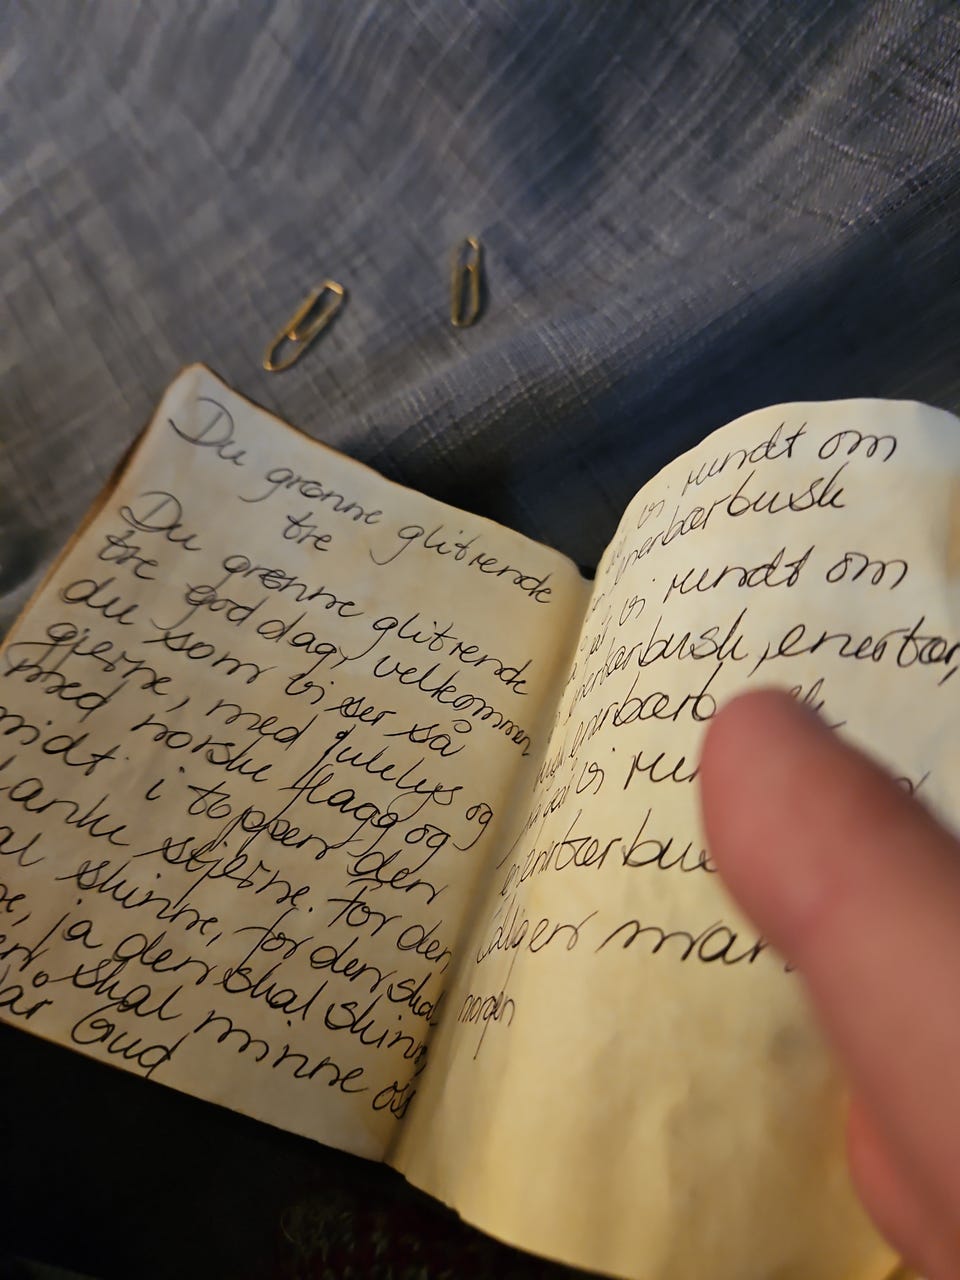 Du grønne glitrende
tre
Du grønne glitrende
tre god dag, velkommen
du som vi ser så
gjerne, med julelys og
med norske flagg og
midt i toppen den
blanke stjerne. for den
skal skinne, for den skal
skinne, ja den skal skinne,
den skal minne oss
vår Gud
vi rundt om
enerbærbusk
vi rundt om
enerbærbusk, enerbær,
enerbærb
vi run
enerbærbu
tidligen man
morgen